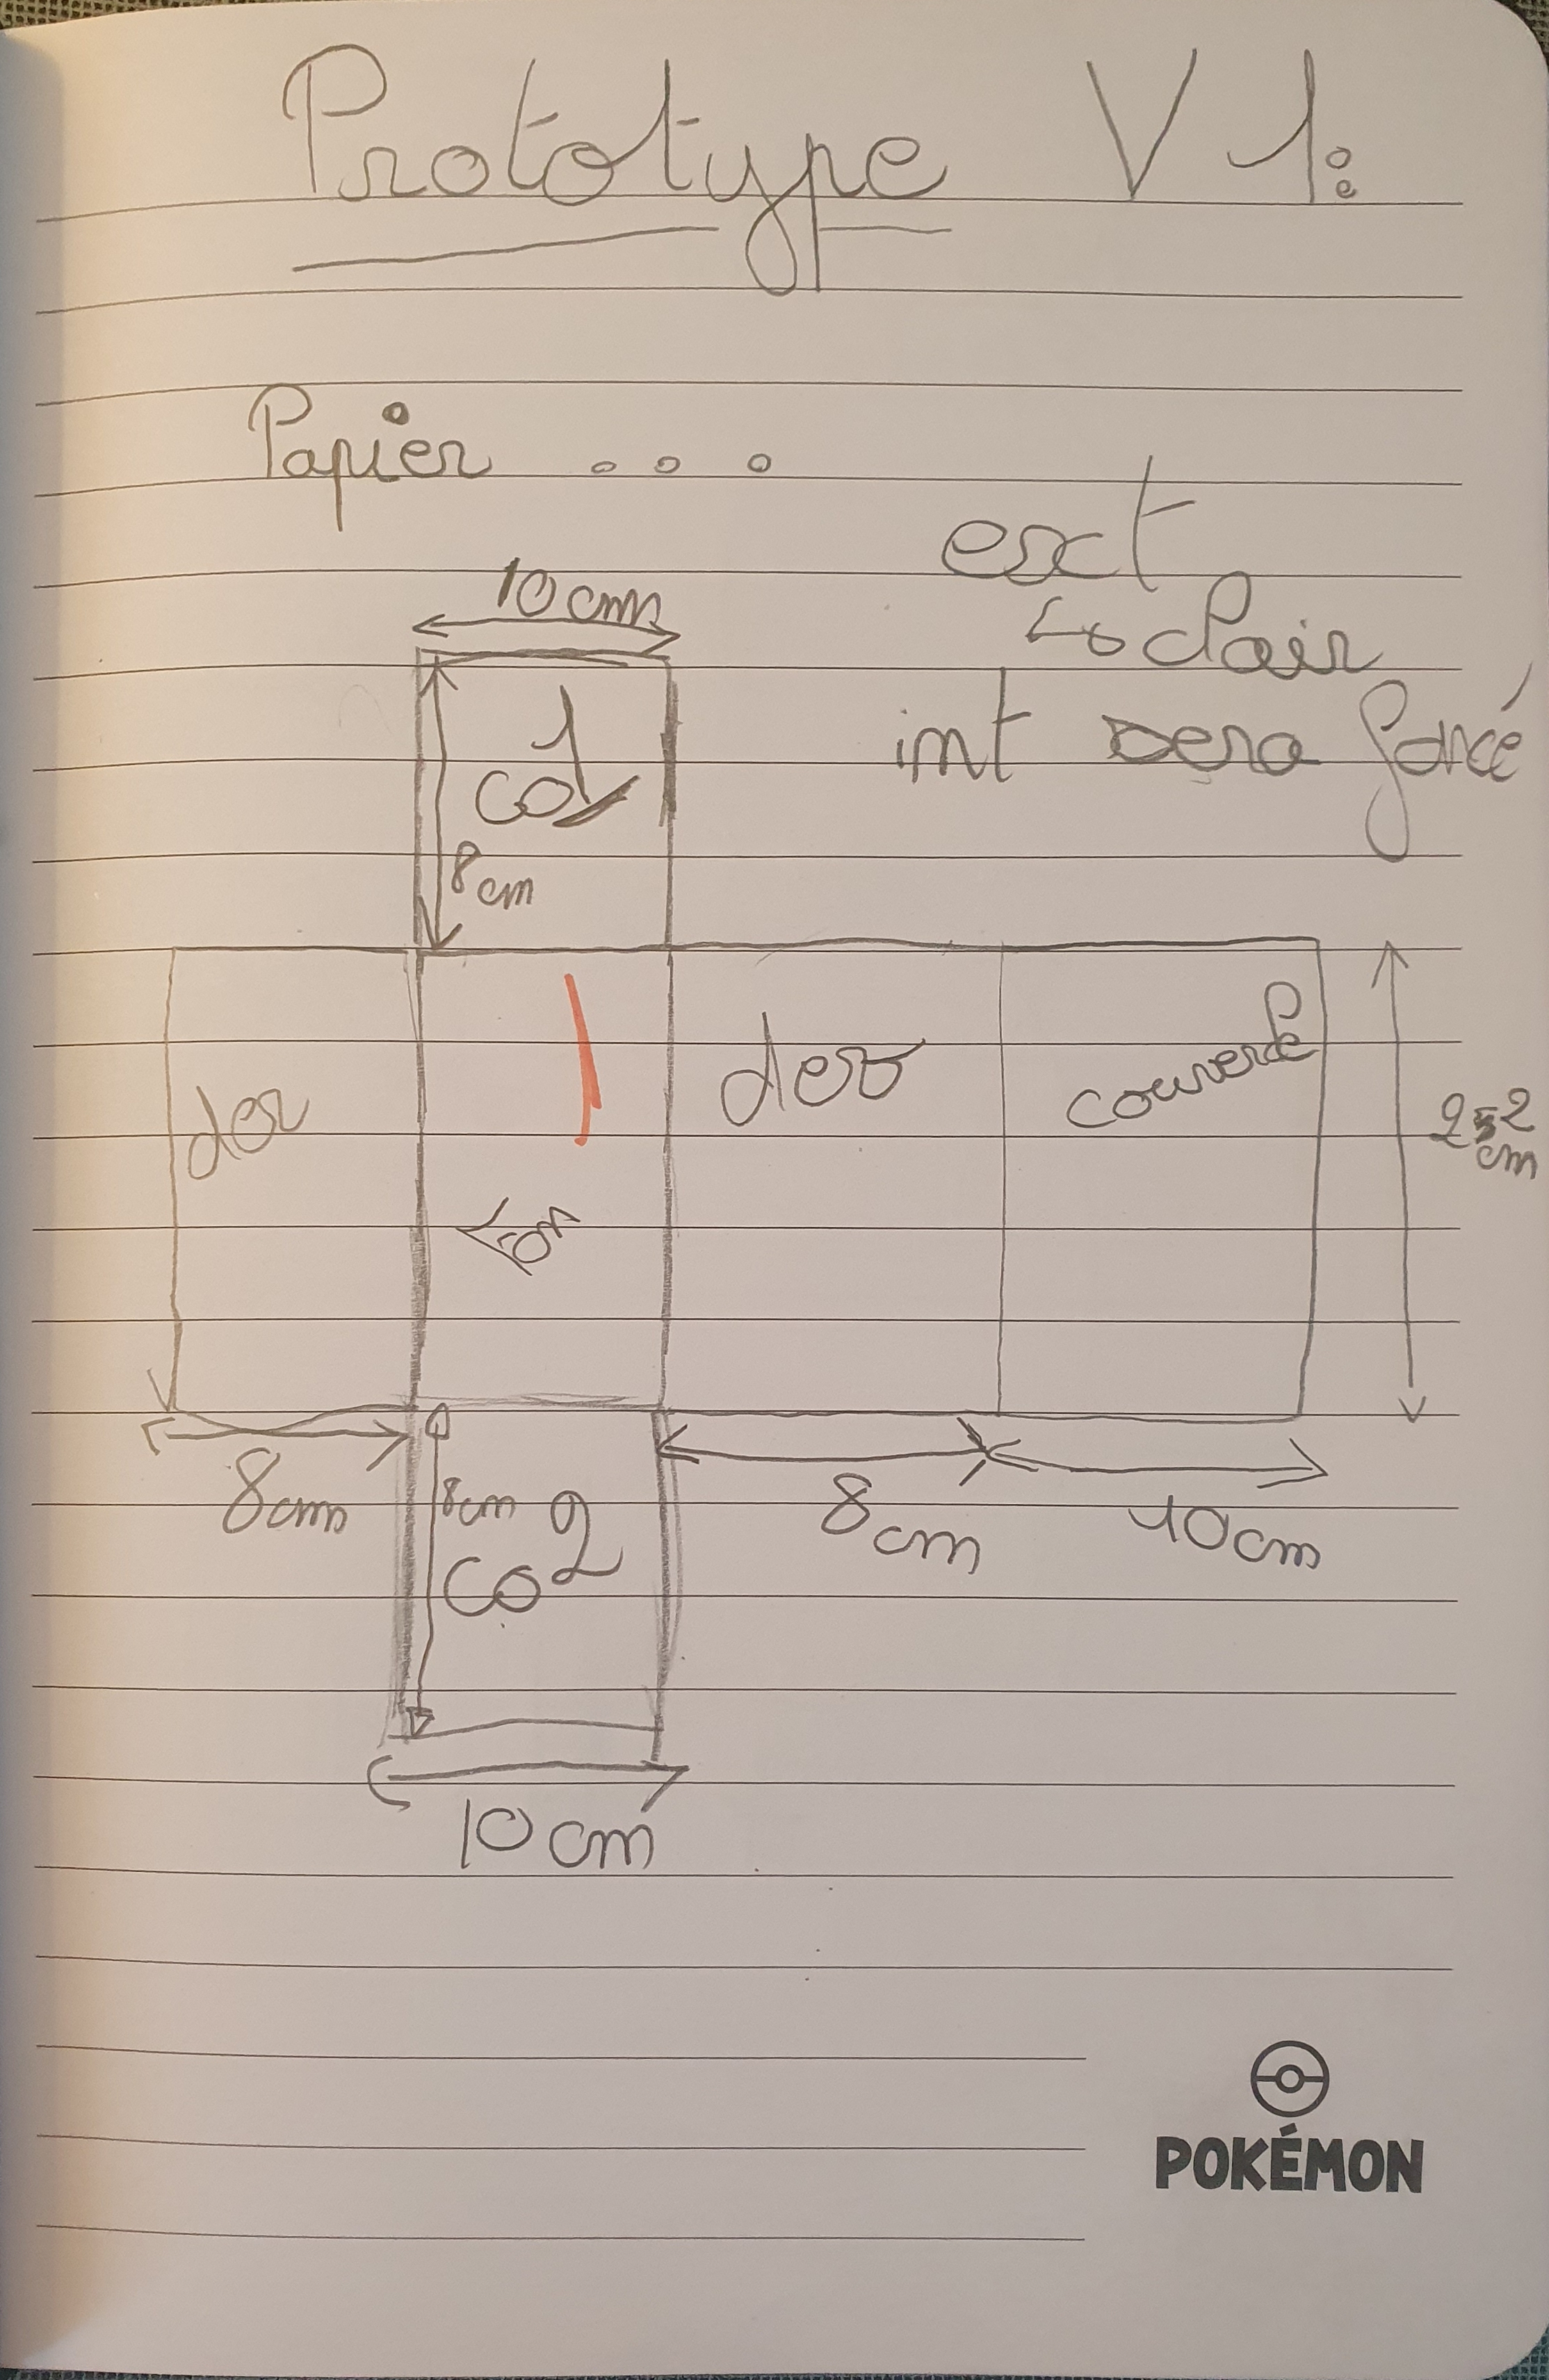 Prototype V 1:
Papier ...
ext
clair
int sera foncé
10 cm
co1
8 cm
der
couvercle
der
cm
Fon
8 cm
8 cm
co2
8 cm
10 cm
10 cm
POKÉMON